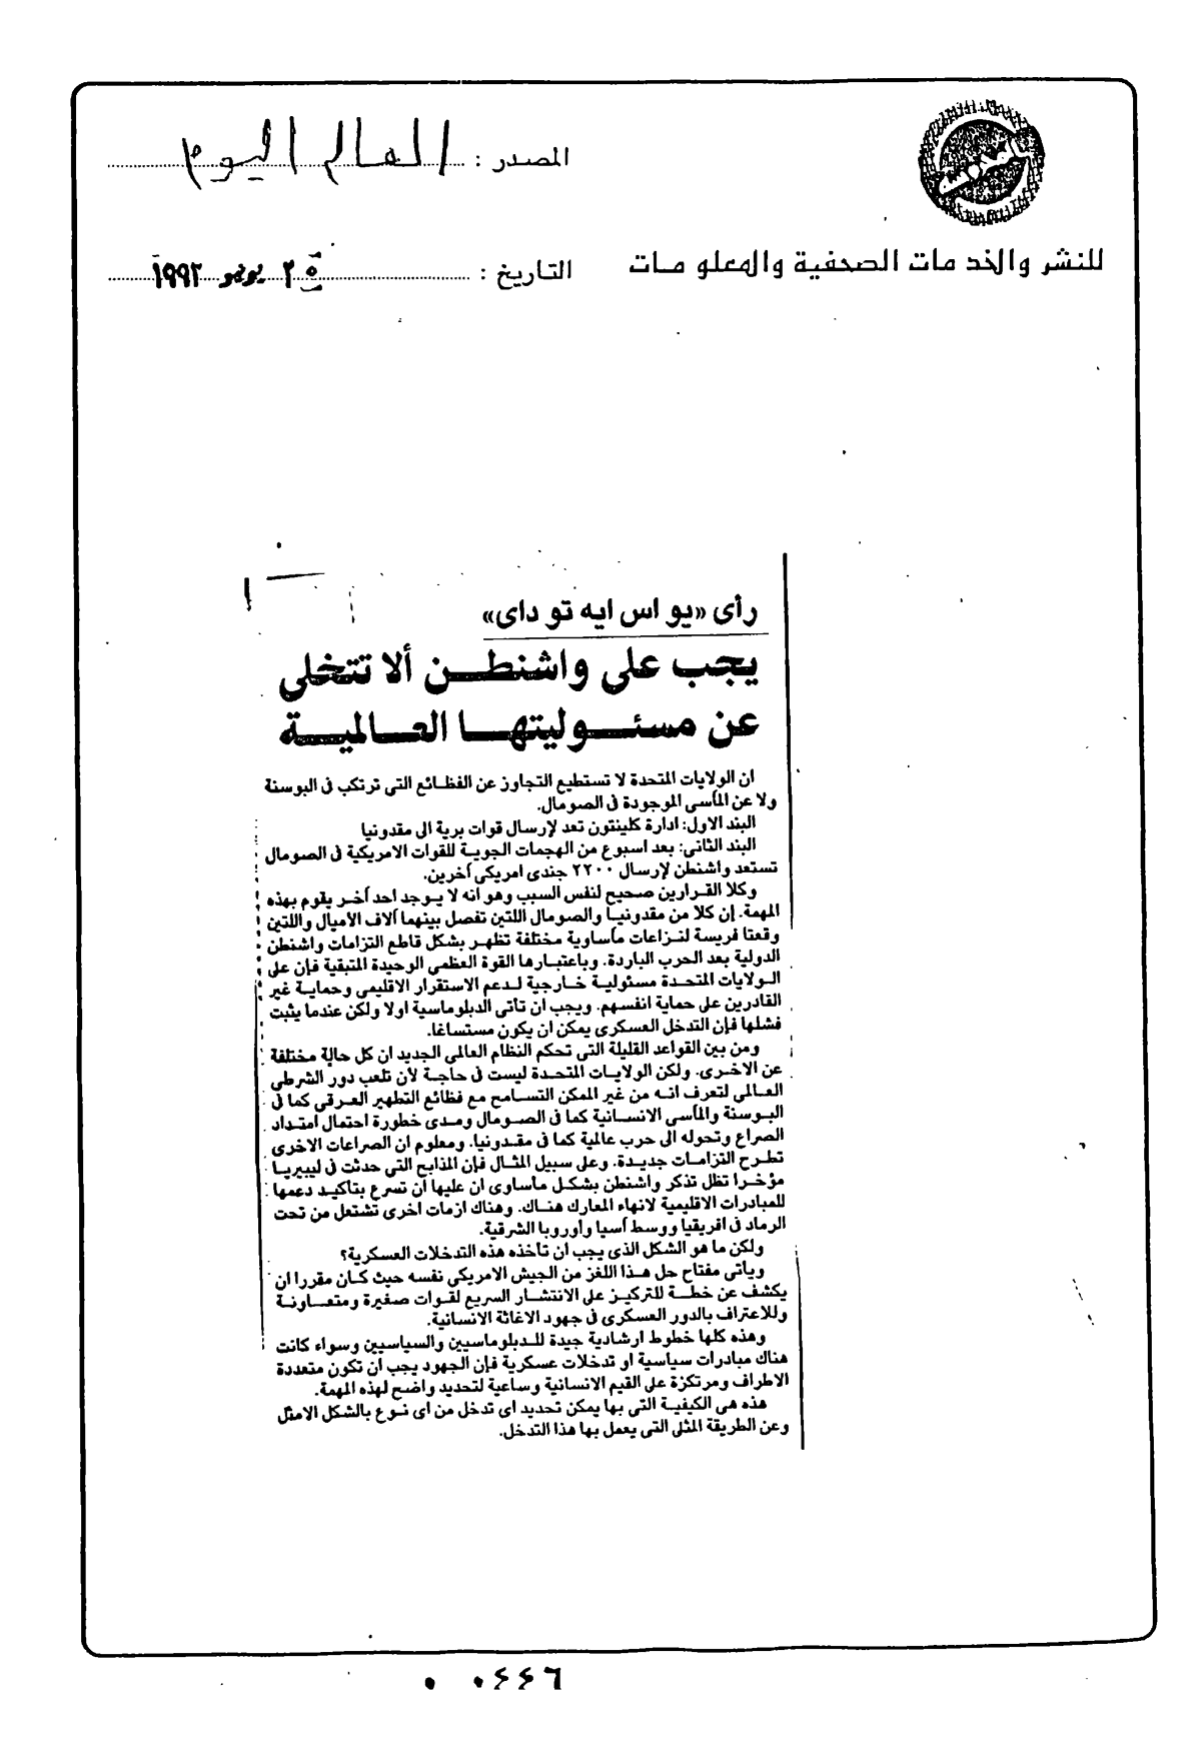 المصدر : العالم اليوم
للنشر والخدمات الصحفية والمعلومات
التاريخ : ٢٥ يونيو ١٩٩٣
رأى «يو اس ايه تو داى»
يجب على واشنطن ألا تتخلى
عن مسئوليتها العالمية
ان الولايات المتحدة لا تستطيع التجاوز عن الفظائع التى ترتكب فى البوسنة
ولا عن المآسى الموجودة فى الصومال.
البند الاول: ادارة كلينتون تعد لإرسال قوات برية الى مقدونيا
البند الثانى: بعد اسبوع من الهجمات الجوية للقوات الامريكية فى الصومال
تستعد واشنطن لإرسال ٢٢٠٠ جندى امريكى آخرين.
وكلا القرارين صحيح لنفس السبب وهو انه لا يوجد احد آخر يقوم بهذه
المهمة. إن كلا من مقدونيا والصومال اللتين تفصل بينهما آلاف الاميال واللتين
وقعتا فريسة لنزاعات مأساوية مختلفة تظهر بشكل قاطع التزامات واشنطن
الدولية بعد الحرب الباردة. وباعتبارها القوة العظمى الوحيدة المتبقية فإن على
الولايات المتحدة مسئولية خارجية لدعم الاستقرار الاقليمى وحماية غير
القادرين على حماية انفسهم. ويجب ان تأتى الدبلوماسية اولا ولكن عندما يثبت
فشلها فإن التدخل العسكرى يمكن ان يكون مستساغا.
ومن بين القواعد القليلة التى تحكم النظام العالمى الجديد ان كل حالة مختلفة
عن الاخرى. ولكن الولايات المتحدة ليست فى حاجة لأن تلعب دور الشرطى
العالمى لتعرف انه من غير الممكن التسامح مع فظائع التطهير العرقى كما فى
البوسنة والمآسى الانسانية كما فى الصومال ومدى خطورة احتمال امتداد
الصراع وتحوله الى حرب عالمية كما فى مقدونيا. ومعلوم ان الصراعات الاخرى
تطرح التزامات جديدة. وعلى سبيل المثال فإن المذابح التى حدثت فى ليبيريا
مؤخرا تظل تذكر واشنطن بشكل مأساوى ان عليها ان تسرع بتأكيد دعمها
للمبادرات الاقليمية لانهاء المعارك هناك. وهناك ازمات اخرى تشتعل من تحت
الرماد فى افريقيا ووسط آسيا وأوروبا الشرقية.
ولكن ما هو الشكل الذى يجب ان تأخذه هذه التدخلات العسكرية؟
ويأتى مفتاح حل هذا اللغز من الجيش الامريكى نفسه حيث كان مقررا ان
يكشف عن خطة للتركيز على الانتشار السريع لقوات صغيرة ومتعاونة
وللاعتراف بالدور العسكرى فى جهود الاغاثة الانسانية.
وهذه كلها خطوط ارشادية جيدة للدبلوماسيين والسياسيين وسواء كانت
هناك مبادرات سياسية او تدخلات عسكرية فإن الجهود يجب ان تكون متعددة
الاطراف ومرتكزة على القيم الانسانية وساعية لتحديد واضح لهذه المهمة.
هذه هى الكيفية التى بها يمكن تحديد اى تدخل من اى نوع بالشكل الامثل
وعن الطريقة المثلى التى يعمل بها هذا التدخل.
٠ ٠٤٤٦